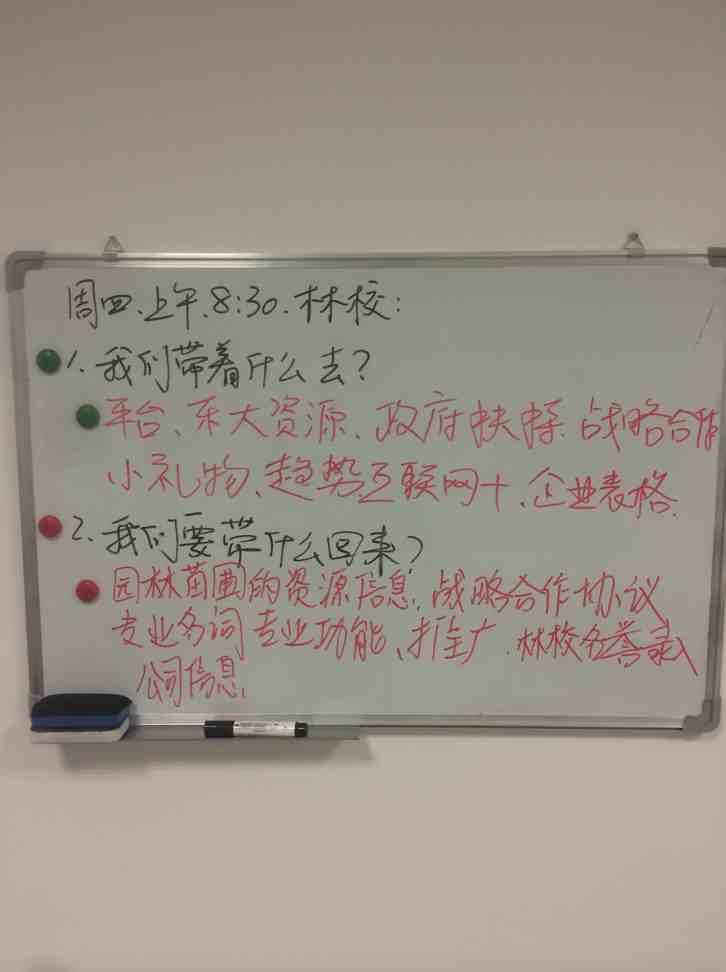 周四.上午.8:30.林校:
1.我们带着什么去?
平台、东大资源、政府扶持.战略合作
小礼物、趋势互联网+、企业表格.
2.我们要带什么回来?
园林苗圃的资源信息.战略合作协议
专业名词专业功能、推广.林校名誉录入
公司信息、